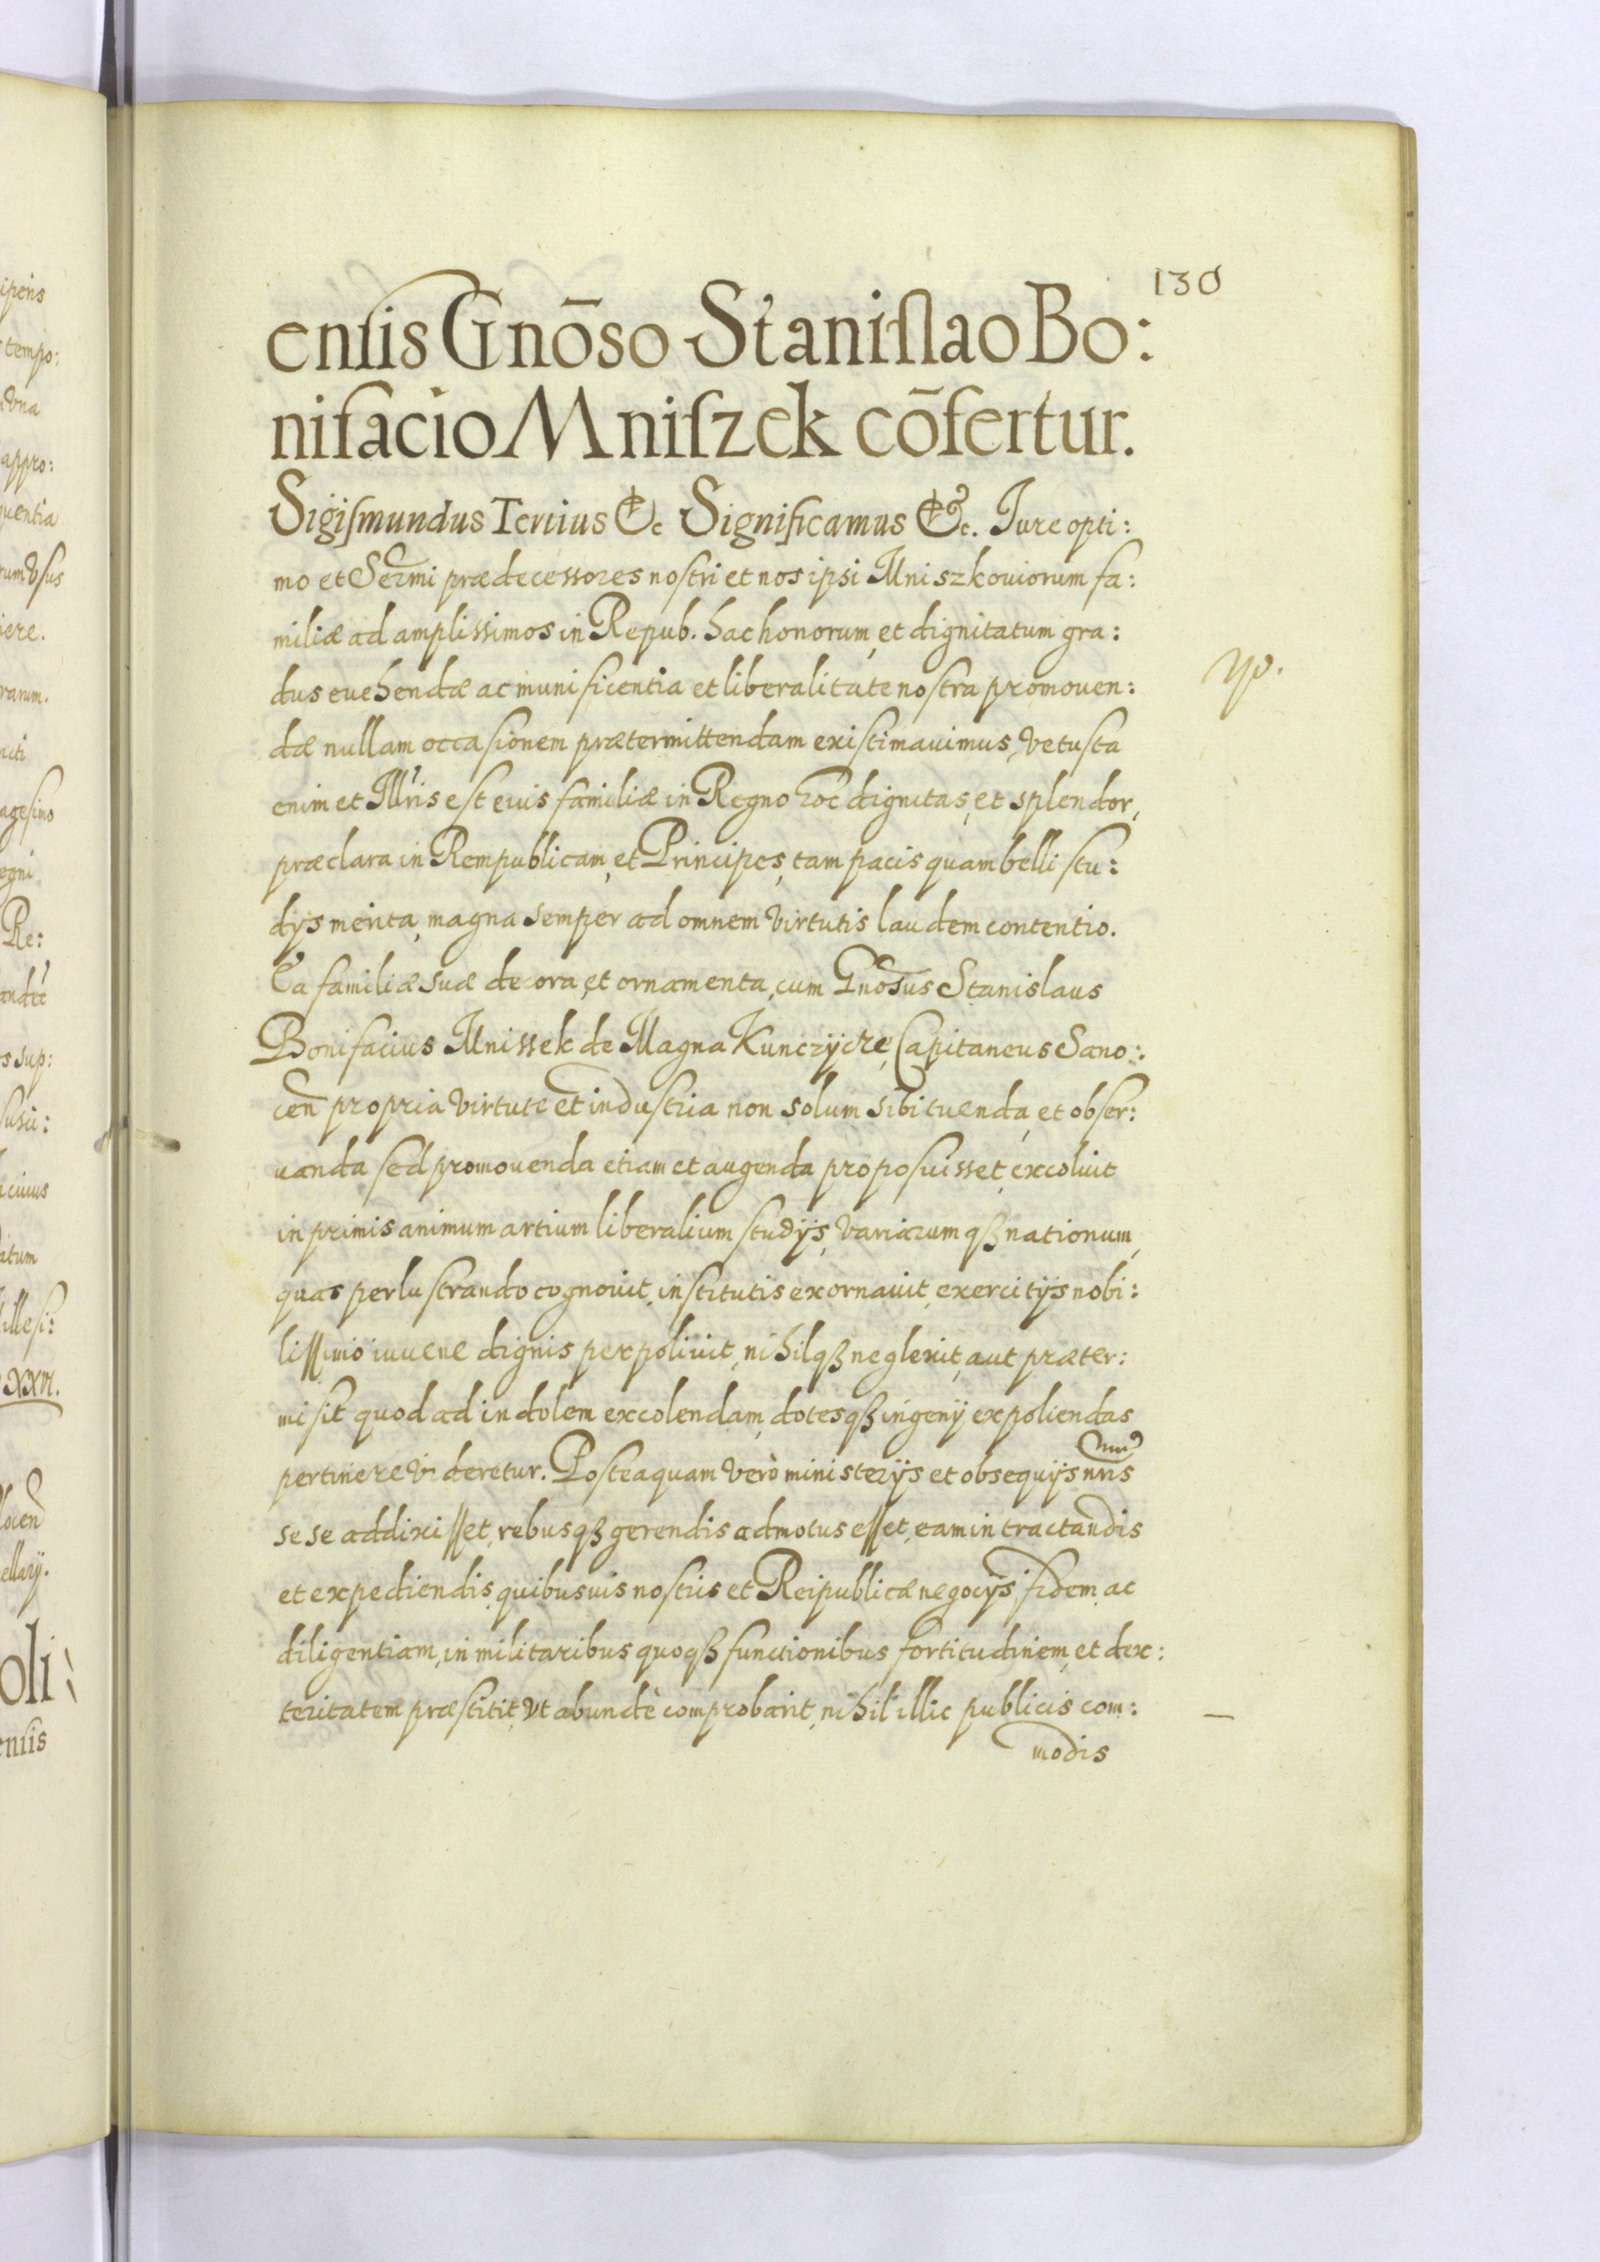 130
ensis Gnōso Stanislao Bo:
nifacio Mniszek cōfertur.
Sigismundus Tertius &c Significamus &c. Iure opti:
mo et Sermi prædecessores nostri et nos ipsi Mniszkouiorum fa:
miliæ ad amplissimos in Repub. hac honorum, et dignitatum gra:
dus euehendæ ac munificentia et liberalitate nostra promouen:
dæ nullam occasionem prætermittendam existimauimus, Vetusta
enim et Illris est euis familiæ in Regno hoc dignitas, et splendor,
præclara in Rempublicam, et Principes, tam pacis quam belli stu:
dijs merita, magna semper ad omnem virtutis laudem contentio.
Ea familiæ suæ decora, et ornamenta, cum Gnosus Stanislaus
Bonifacius Mnissek de Magna Kunczycze, Capitaneus Sano:
cen propria virtute et industria non solum sibi tuenda, et obser:
uanda sed promouenda etiam et augenda proposuisset, excoluit
in primis animum artium liberalium studijs, variarumqß nationum,
quas perlustrando cognouit, institutis exornauit, exercitijs nobi:
lissimo iuuene dignis perpoliuit, nihilqß neglexit, aut præter:
misit quod ad indolem excolendam, dotesqß ingenij expoliendas
pertinere videretur. Posteaquam verò ministerijs et obsequijs nris
sese addixisset, rebusqß gerendis admotus esset, eam in tractandis
et expediendis, quibusuis nostris et Reipublicæ negocijs, fidem, ac
diligentiam, in militaribus quoqß functionibus fortitudinem, et dex:
teritatem præstitit, vt abundè comprobarit, nihil illic publicis com:
modis